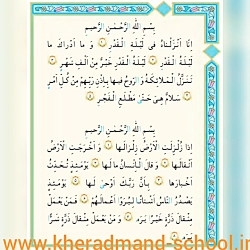 بِسْمِ اللَّهِ الرَّحْمٰنِ الرَّحِيمِ
إِنَّا أَنْزَلْنَاهُ فِي لَيْلَةِ الْقَدْرِ وَ مَا أَدْرَاكَ مَا
لَيْلَةُ الْقَدْرِ لَيْلَةُ الْقَدْرِ خَيْرٌ مِنْ أَلْفِ شَهْرٍ
تَنَزَّلُ الْمَلَائِكَةُ وَ الرُّوحُ فِيهَا بِإِذْنِ رَبِّهِمْ مِنْ كُلِّ أَمْرٍ
سَلَامٌ هِيَ حَتَّىٰ مَطْلَعِ الْفَجْرِ
بِسْمِ اللَّهِ الرَّحْمٰنِ الرَّحِيمِ
إِذَا زُلْزِلَتِ الْأَرْضُ زِلْزَالَهَا وَ أَخْرَجَتِ الْأَرْضُ
أَثْقَالَهَا وَ قَالَ الْإِنْسَانُ مَا لَهَا يَوْمَئِذٍ تُحَدِّثُ
أَخْبَارَهَا بِأَنَّ رَبَّكَ أَوْحَىٰ لَهَا يَوْمَئِذٍ
يَصْدُرُ النَّاسُ أَشْتَاتًا لِيُرَوْا أَعْمَالَهُمْ فَمَنْ يَعْمَلْ
مِثْقَالَ ذَرَّةٍ خَيْرًا يَرَهُ وَ مَنْ يَعْمَلْ مِثْقَالَ ذَرَّةٍ شَرًّا
www.kheradmand-school.ir